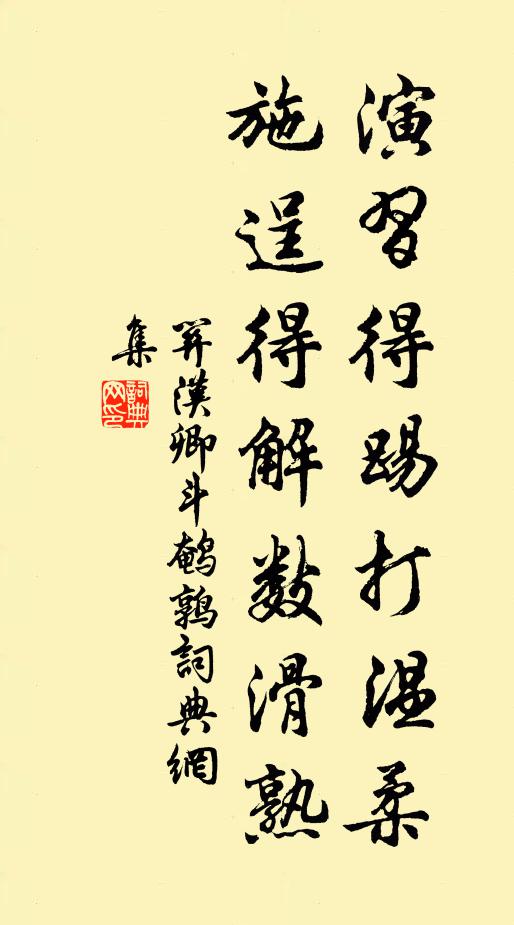 演習得踢打温柔
施逞得解數滑熟
關漢卿斗鵪鶉詞典網
集
詞典網印